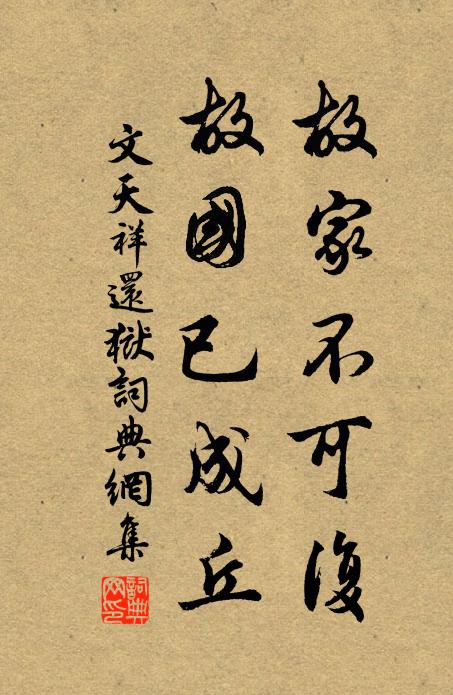 故家不可復
故國已成丘
文天祥還獄詞典網集
詞典網印